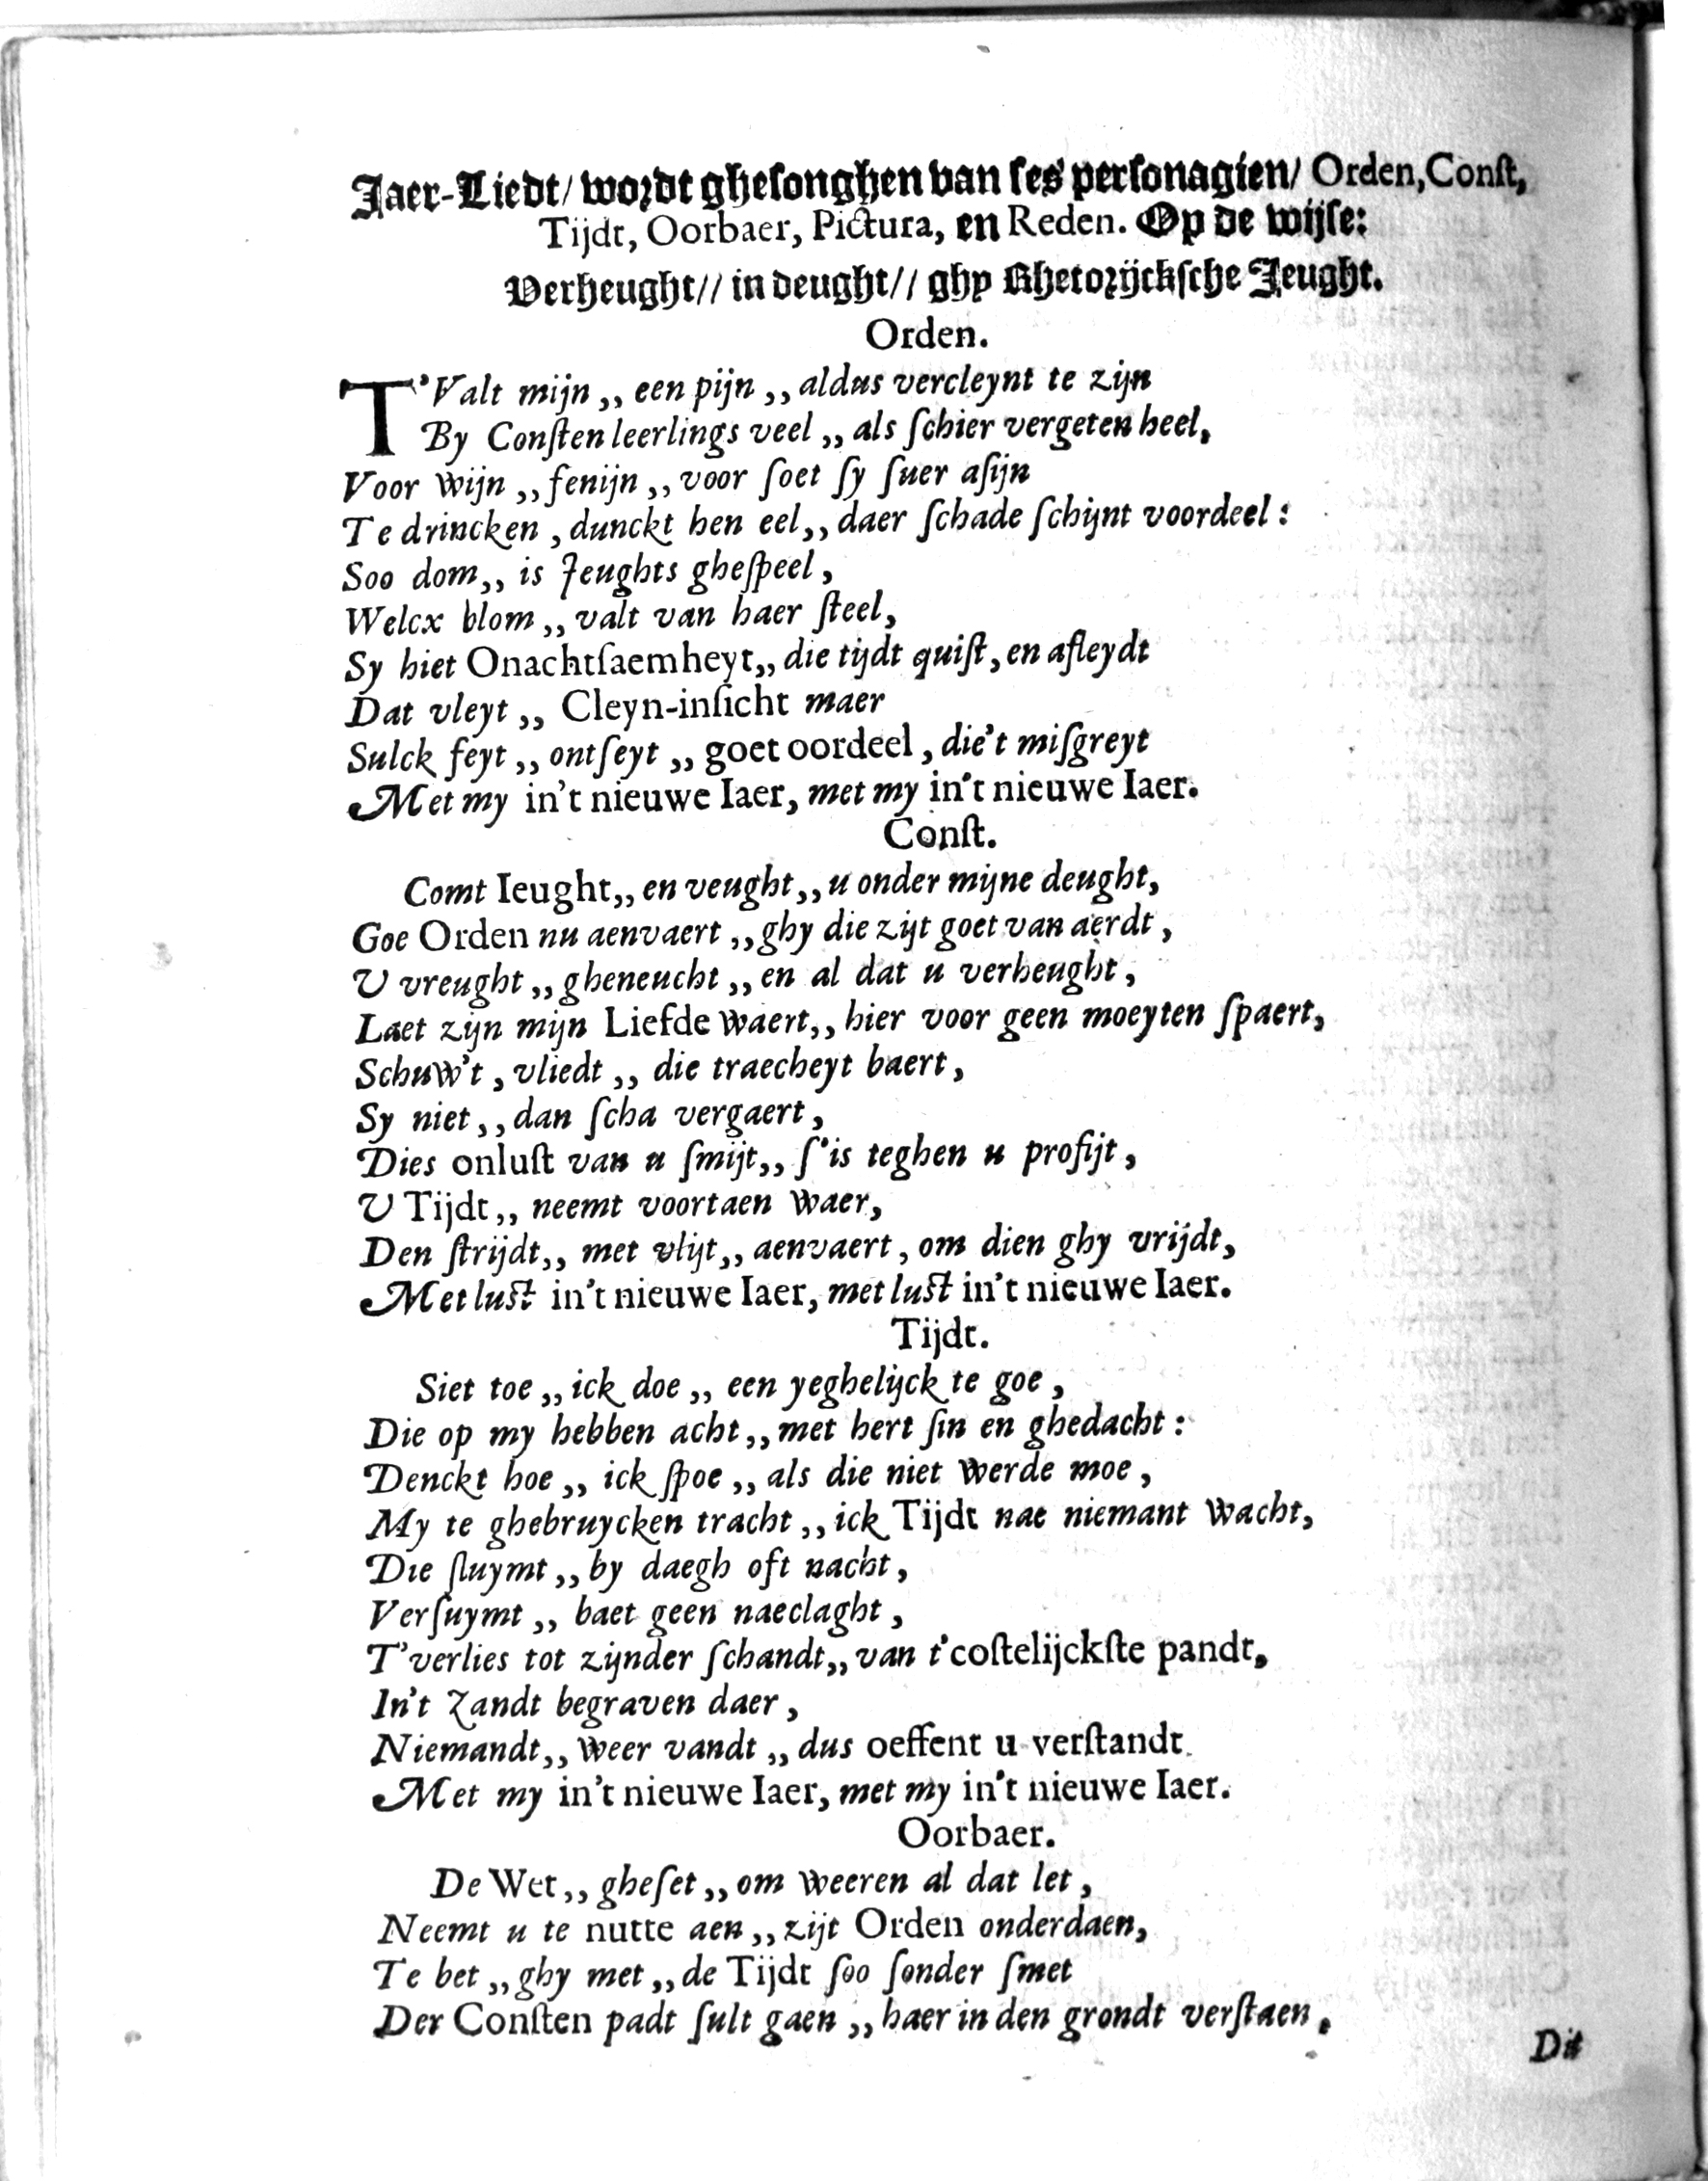 Jaer-Liedt/ wordt ghesonghen van ses personagien/ Orden, Const,
Tijdt, Oorbaer, Pictura, en Reden. Op de wijse:
Verheught// in deught// ghy Rhetorijcksche Jeught.
Orden.
T'Valt mijn,, een pijn,, aldus vercleynt te zijn
By Consten leerlings veel,, als schier vergeten heel,
Voor wijn,, fenijn,, voor soet sy suer asijn
Te drincken, dunckt hen eel,, daer schade schijnt voordeel:
Soo dom,, is Jeughts ghespeel,
Welcx blom,, valt van haer steel,
Sy hiet Onachtsaemheyt,, die tijdt quist, en afleydt
Dat vleyt,, Cleyn-insicht maer
Sulck feyt,, ontseyt,, goet oordeel, die't misgreyt
Met my in't nieuwe Iaer, met my in't nieuwe Iaer.
Const.
Comt Ieught,, en veught,, u onder mijne deught,
Goe Orden nu aenvaert,, ghy die zijt goet van aerdt,
U vreught,, gheneucht,, en al dat u verheught,
Laet zijn mijn Liefde waert,, hier voor geen moeyten spaert,
Schuw't, vliedt,, die traecheyt baert,
Sy niet,, dan scha vergaert,
Dies onlust van u smijt,, s'is teghen u profijt,
U Tijdt,, neemt voortaen waer,
Den strijdt,, met vlijt,, aenvaert, om dien ghy vrijdt,
Met lust in't nieuwe Iaer, met lust in't nieuwe Iaer.
Tijdt.
Siet toe,, ick doe,, een yeghelijck te goe,
Die op my hebben acht,, met hert sin en ghedacht:
Denckt hoe,, ick spoe,, als die niet werde moe,
My te ghebruycken tracht,, ick Tijdt nae niemant wacht,
Die sluymt,, by daegh oft nacht,
Versuymt,, baet geen naeclaght,
T'verlies tot zijnder schandt,, van t'costelijckste pandt,
In't Zandt begraven daer,
Niemandt,, weer vandt,, dus oeffent u verstandt
Met my in't nieuwe Iaer, met my in't nieuwe Iaer.
Oorbaer.
De Wet,, gheset,, om weeren al dat let,
Neemt u te nutte aen,, zijt Orden onderdaen,
Te bet,, ghy met,, de Tijdt soo sonder smet
Der Consten padt sult gaen,, haer in den grondt verstaen.
Dit